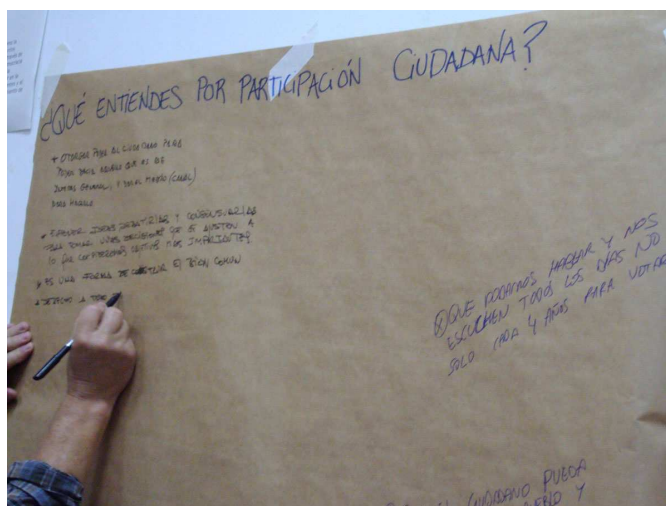 ¿QUÉ ENTIENDES POR PARTICIPACIÓN CIUDADANA?
+ OTORGAR PODER AL CIUDADANO PARA
QUE ES DE
GENERAL, Y DAR EL MEDIO (CANAL)
PARA HACERLO
+ EXPONER IDEAS, DEBATIRLAS Y CONSENSUARLAS
PARA TOMAR UNAS DECISIONES QUE SE AJUSTEN A
LO QUE CONSIDEREMOS OBJETIVOS MÁS IMPORTANTES
+ ES UNA FORMA DE EL BIEN COMUN
+ DERECHO A
QUE PODAMOS HABLAR Y NOS
ESCUCHEN TODOS LOS DÍAS NO
SOLO CADA 4 AÑOS PARA VOTAR
CIUDADANO PUEDA
Y